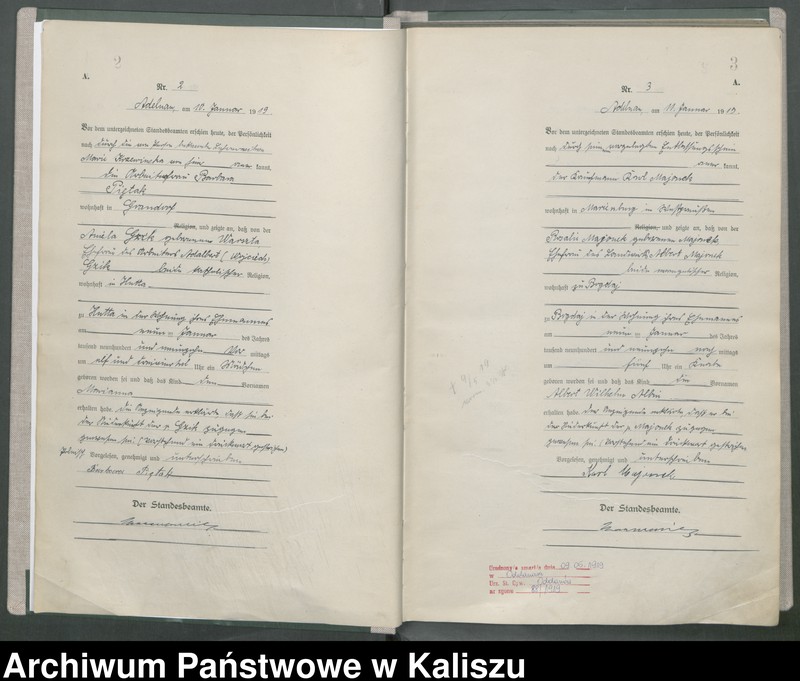 2
A.
Nr. 2
Adelnau, am 10. Januar 1919.
Vor dem unterzeichneten Standesbeamten erschien heute, der Persönlichkeit
nach durch die
Marie kannt,
die Arbeiterfrau Barbara
Piętak
wohnhaft in Grandorf
Religion, und zeigte an, daß von der
Aniela Gzik geborenen Warszta
Ehefrau des Arbeiters Adalbert (Wojciech)
Gzik beide katholischer Religion,
wohnhaft in Hutta
zu Hutta in der Wohnung ihres Ehemannes
am neunten Januar des Jahres
tausend neunhundert und neunzehn Vor mittags
um elf und dreiviertel Uhr ein Mädchen
geboren worden sei und daß das Kind den Vornamen
Marianna
erhalten habe. Die Anzeigende erklärte, daß sie bei
der Niederkunft der p. Gzik zugegen
gewesen sei. (Vorstehend ein Druckwort gestrichen)
Vorgelesen, genehmigt und unterschrieben
Barbara Piętak
Der Standesbeamte.
3
A.
Nr. 3
Adelnau, am 11. Januar 1919.
Vor dem unterzeichneten Standesbeamten erschien heute, der Persönlichkeit
nach durch seinen vorgelegten Entlassungsschein
kannt,
der Kaufmann Karl Majorek
wohnhaft in Marienburg in Westpreußen
Religion, und zeigte an, daß von der
Rosalie Majorek geborenen Majorek
Ehefrau des Landwirts Albert Majorek
beide evangelischer Religion,
wohnhaft zu Bogdaj
zu Bogdaj in der Wohnung ihres Ehemannes
am neunten Januar des Jahres
tausend neunhundert und neunzehn nach mittags
um fünf Uhr ein Knabe
geboren worden sei und daß das Kind die Vornamen
Albert Wilhelm Albin
erhalten habe. Der Anzeigende erklärte, daß er bei
der Niederkunft der p. Majorek zugegen
gewesen sei. (Vorstehend ein Druckwort gestrichen
Vorgelesen, genehmigt und unterschrieben
Karl Majorek
Der Standesbeamte.
w
1919
Archiwum Państwowe w Kaliszu